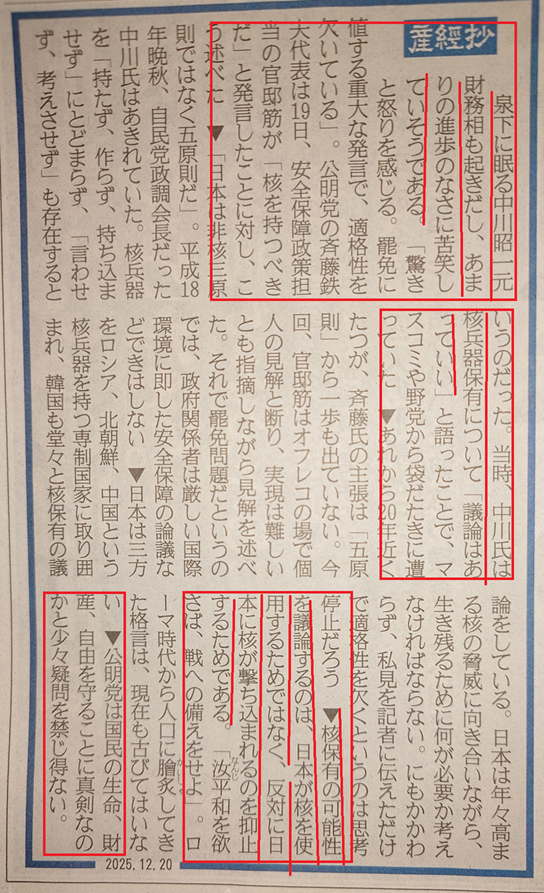 産經抄
泉下に眠る中川昭一元
財務相も起きだし、あま
りの進歩のなさに苦笑し
ていそうである。「驚き
と怒りを感じる。罷免に
値する重大な発言で、適格性を
欠いている」。公明党の斉藤鉄
夫代表は19日、安全保障政策担
当の官邸筋が「核を持つべき
だ」と発言したことに対し、こ
う述べた ▼「日本は非核三原
則ではなく五原則だ」。平成18
年晩秋、自民党政調会長だった
中川氏はあきれていた。核兵器
を「持たず、作らず、持ち込ま
せず」にとどまらず、「言わせ
ず、考えさせず」も存在すると
いうのだった。当時、中川氏は
核兵器保有について「議論はあ
っていい」と語ったことで、マ
スコミや野党から袋だたきに遭
っていた ▼あれから20年近く
たつが、斉藤氏の主張は「五原
則」から一歩も出ていない。今
回、官邸筋はオフレコの場で個
人の見解と断り、実現は難しい
とも指摘しながら見解を述べ
た。それで罷免問題だというの
では、政府関係者は厳しい国際
環境に即した安全保障の論議な
どできはしない ▼日本は三方
をロシア、北朝鮮、中国という
核兵器を持つ専制国家に取り囲
まれ、韓国も堂々と核保有の議
論をしている。日本は年々高ま
る核の脅威に向き合いながら、
生き残るために何が必要か考え
なければならない。にもかかわ
らず、私見を記者に伝えただけ
で適格性を欠くというのは思考
停止だろう ▼核保有の可能性
を議論するのは、日本が核を使
用するためではなく、反対に日
本に核が撃ち込まれるのを抑止
するためである。「汝平和を欲
さば、戦への備えをせよ」。ロ
ーマ時代から人口に膾炙してき
た格言は、現在も古びてはいな
い ▼公明党は国民の生命、財
産、自由を守ることに真剣なの
かと少々疑問を禁じ得ない。
2025.12.20